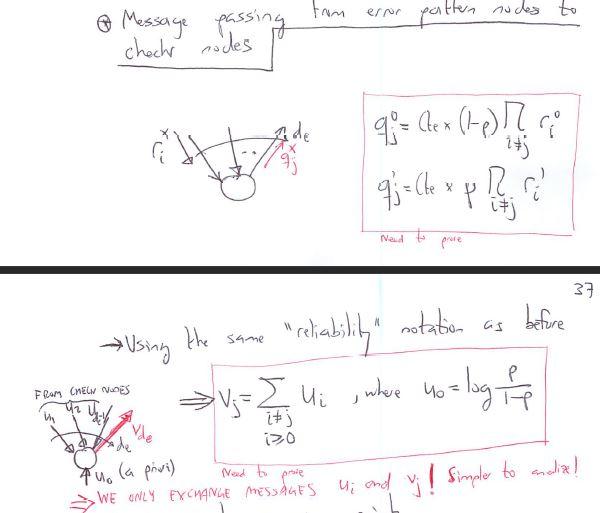 ⊛ Message passing from error pattern nodes to
check nodes
r_i^x ... d_e
q_j^x
q_j^0 = Cte × (1-p) ∏_{i≠j} r_i^0
q_j^1 = Cte × p ∏_{i≠j} r_i^1
Need to prove
37
→ Using the same "reliability" notation as before
FROM CHECK NODES
u_1 u_2 u_{de-1} V_{de}
d_e
u_0 (a priori)
⇒ V_j = ∑_{i≠j, i≥0} u_i , where u_0 = log p/(1-p)
Need to prove
⇒ WE ONLY EXCHANGE MESSAGES u_i and v_j! Simpler to analize!